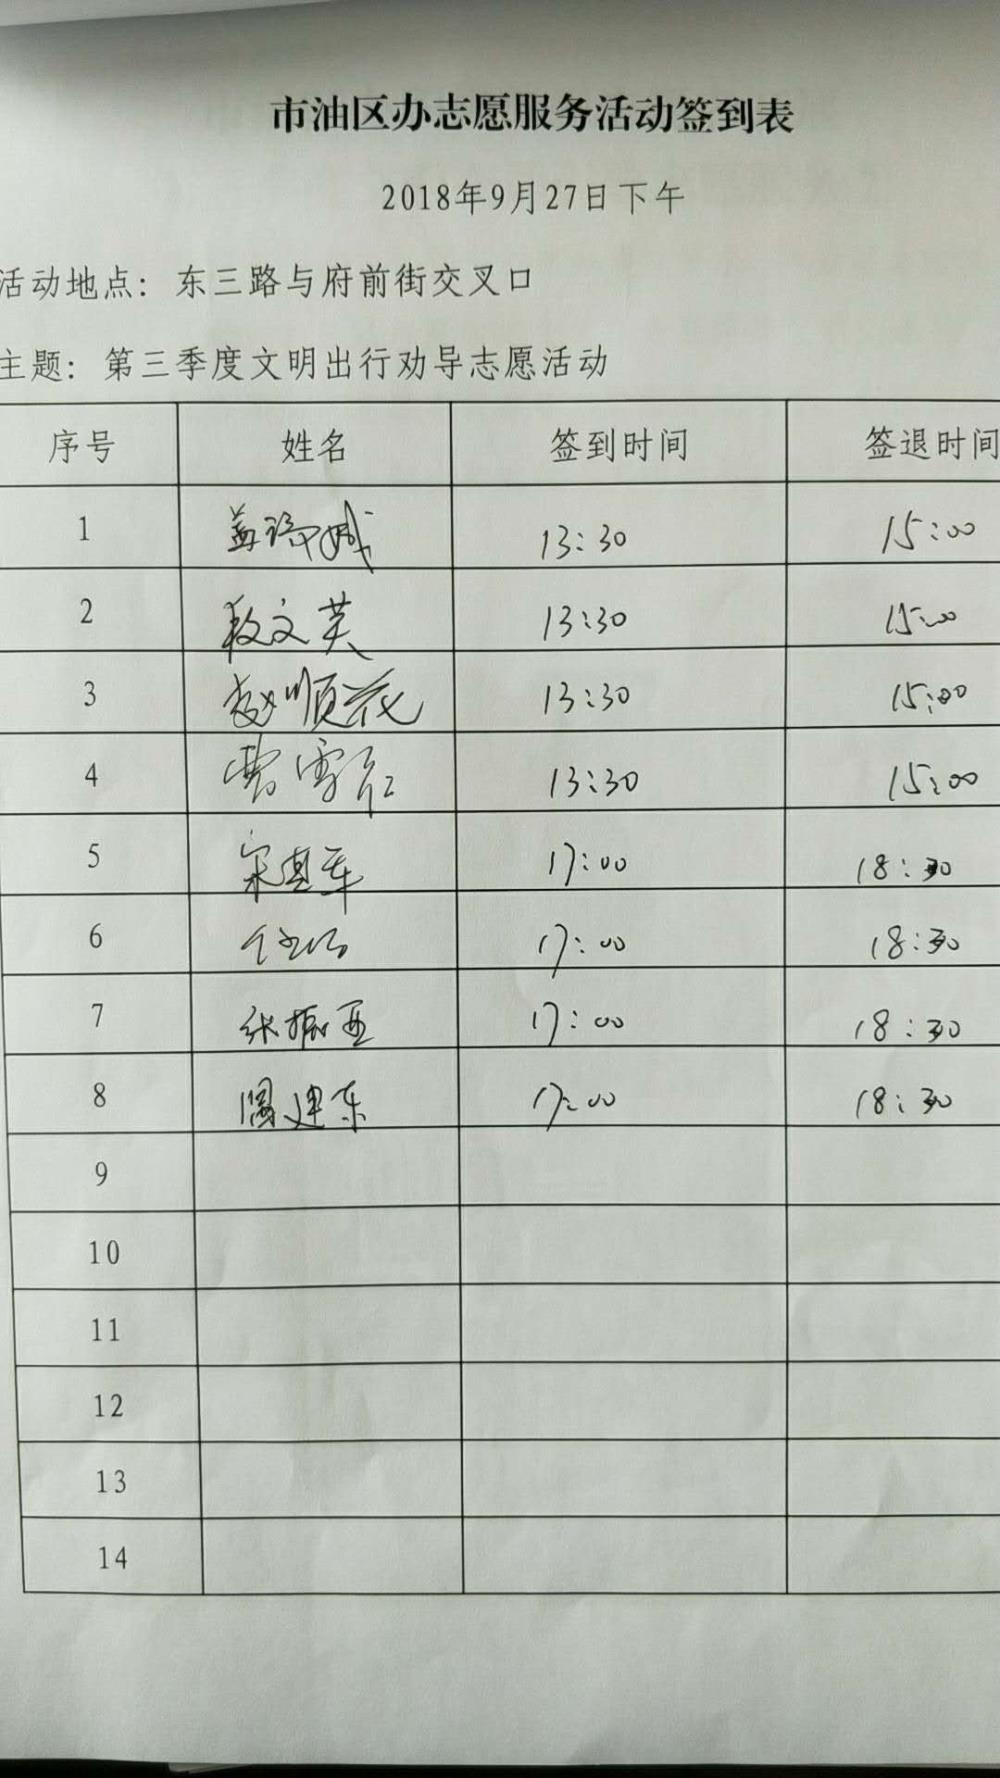 市油区办志愿服务活动签到表
2018年9月27日下午
活动地点：东三路与府前街交叉口
主题：第三季度文明出行劝导志愿活动
序号 姓名 签到时间 签退时间
1 13:30 15:00
2 段文英 13:30 15:00
3 赵顺花 13:30 15:00
4 曹雪红 13:30 15:00
5 宋其军 17:00 18:30
6 17:00 18:30
7 张振亚 17:00 18:30
8 周建东 17:00 18:30
9
10
11
12
13
14